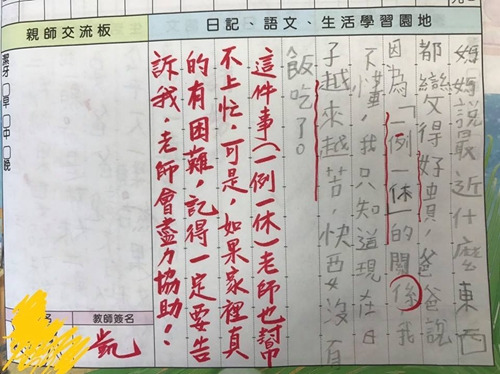 日記、語文、生活學習園地
媽媽說最近什麼東西
都變得好貴，爸爸說
因為「一例一休」的關係我
不懂，我只知道現在日
子越來越苦，快要沒有
飯吃了。
這件事(一例一休)老師也幫
不上忙，可是，如果家裡真
的有困難，記得一定要告
訴我，老師會盡力協助！
親師交流板
潔牙 □早 □中 □晚
教師簽名
凱